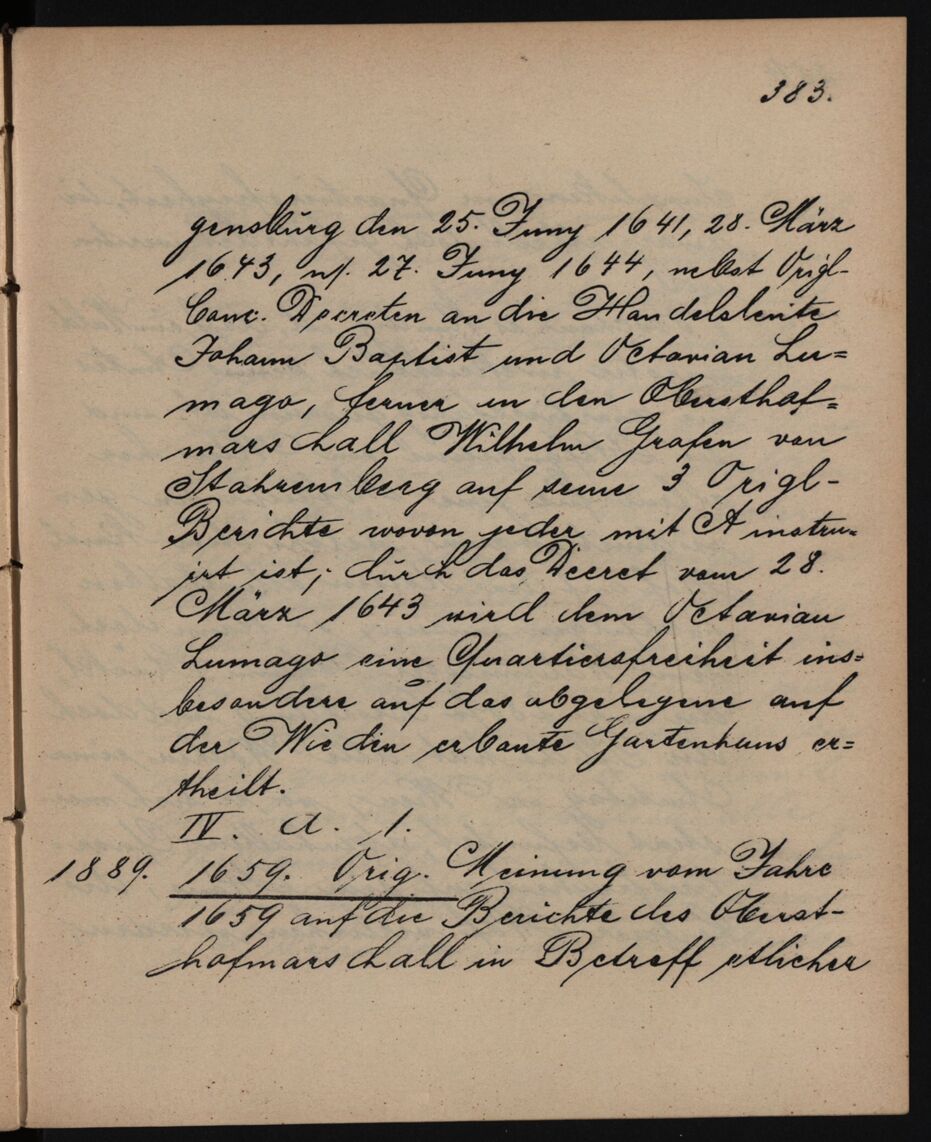 383.
gensburg den 25. Juny 1641, 28. März
1643, u/. 27. Juny 1644, nebst Origl-
Conc. Decreten an die Handelsleute
Johann Baptist und Octavian Lu=
mago, ferner an den Obersthof=
marschall Wilhelm Grafen von
Stahremberg auf seine 3 Origl-
Berichte wovon jeder mit A instru=
irt ist; durch das Decret vom 28.
März 1643 wird dem Octavian
Lumago eine Quartiersfreiheit ins=
besondere auf das abgelegene auf
der Wieden erbaute Gartenhaus er=
theilt.
IV. A. 1.
1889. 1659. Orig. Meinung vom Jahre
1659 auf die Berichte des Oberst-
hofmarschall in Betreff etlicher